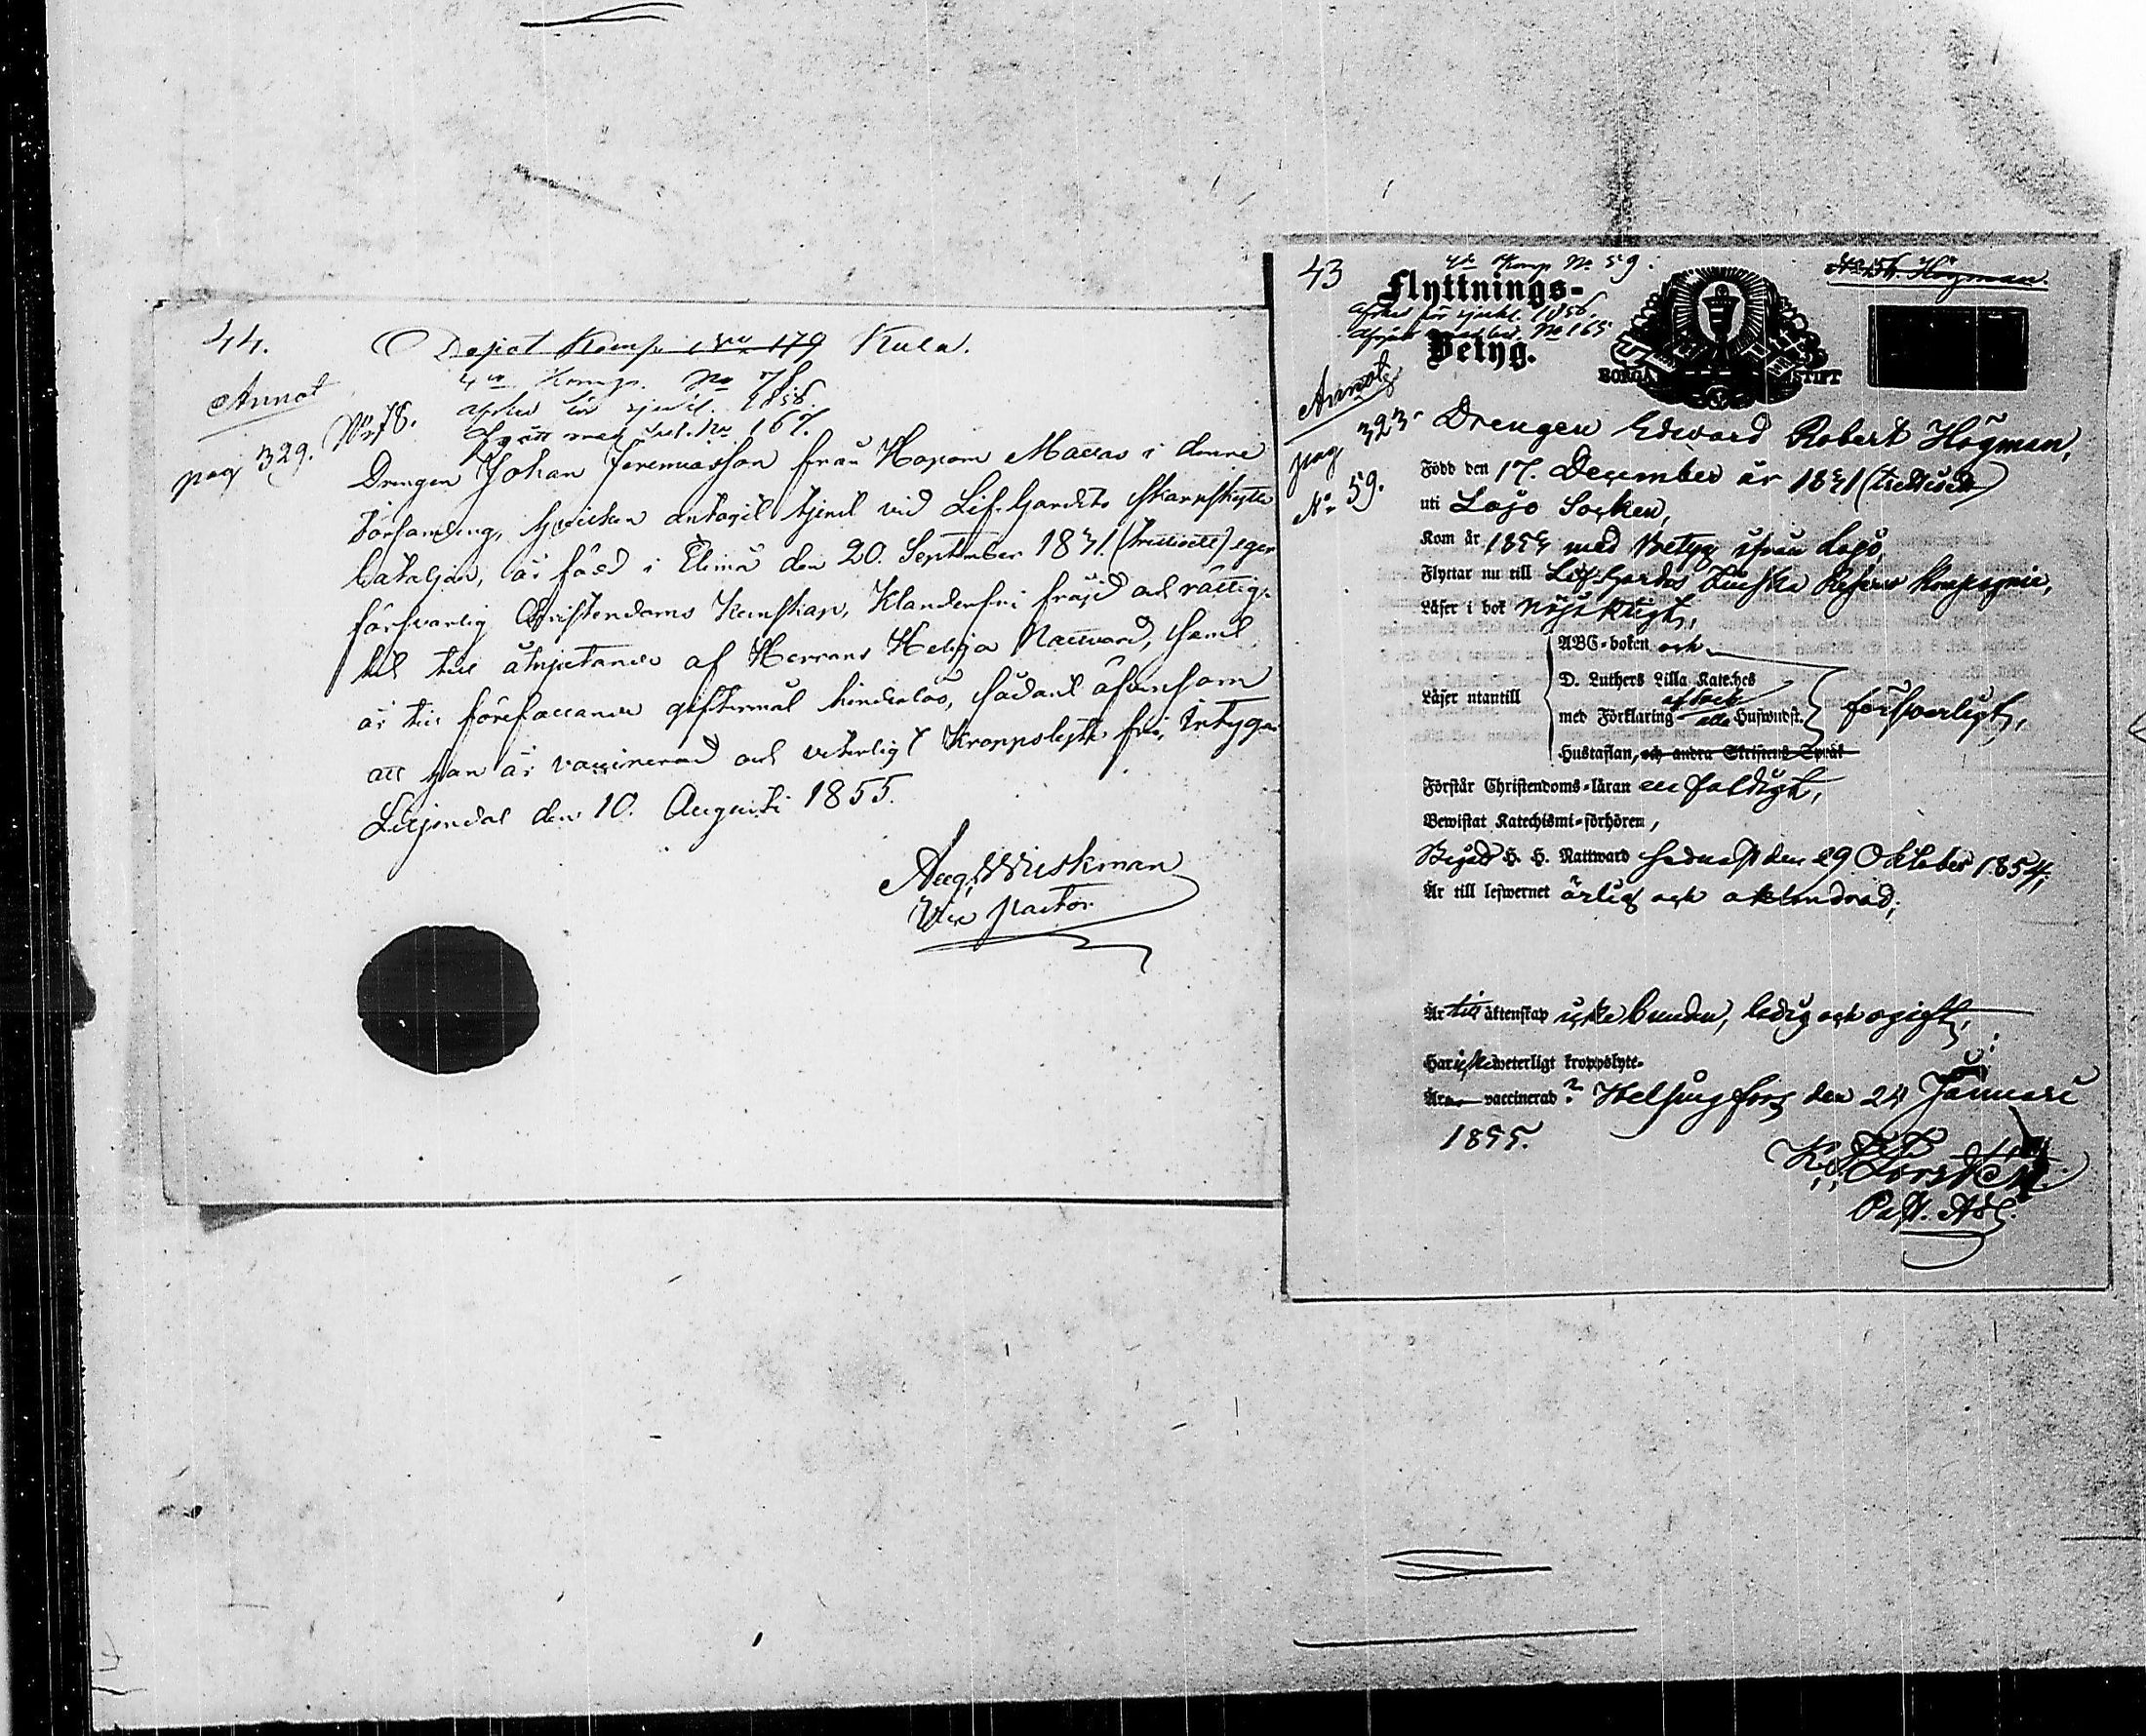 44.
Depot Komp. No 179 Kula.
Annot
4de Komp. No 78
afsked för sjukl. 1856.
pag 329. No 78.
afgått med bet. No 167.
Drengen Johan Jeremiasson från Haapom Mattas i denne
Församling, hvilken antagit tjenst vid Lif-Gardets Skarpskytte
bataljon, är född i Elimä den 20. September 1831. (trettioett) eger
försvarlig Christendoms Kunskap, Klanderfri frejd och rättig-
het till åtnjutande af Herrans Heliga Nattvard, samt
är till förefallande giftermål hinderlös, sådant äfvensom
att han är vaccinerad och veterligt Kroppslyte fri, intygar
Liljendal den 10. Augusti 1855.
Aug. Wiskman
Vice pastor
43
4de Komp No 59.
No 56. Högman.
Flyttnings-
afsked för sjukl. 1856,
afgått med bet. No 165
Betyg.
BORGÅ STIFT
Annot.
pag 323.
No 59.
Drengen Edvard Robert Högman,
Född den 17. December år 1831 (trettioett)
uti Lojo Socken,
Kom år 1854 med Betyg ifrån Lojo,
Flyttar nu till Lif-Gardes Finska Reserv Kompagnie,
Läser i bok nöjaktigt,
ABC-boken och
D. Luthers Lilla Kateches
Läser utantill
med Förklaring alla Huswudst.
försvarligt,
Hustaflan, och andra Skriftens Språk
Förstår Christendoms-läran enfaldigt,
Bewistat Katechismi-förhören,
Begådt H. H. Nattward sednast den 29 Oktober 1854;
Är till lefwernet ärlig och oklandrad;
Är till äktenskap icke bunden, ledig och ogift,
Har icke weterligt kroppslyte.
Är vaccinerad? Helsingfors den 24 Januari
1855.
Past. Adj.